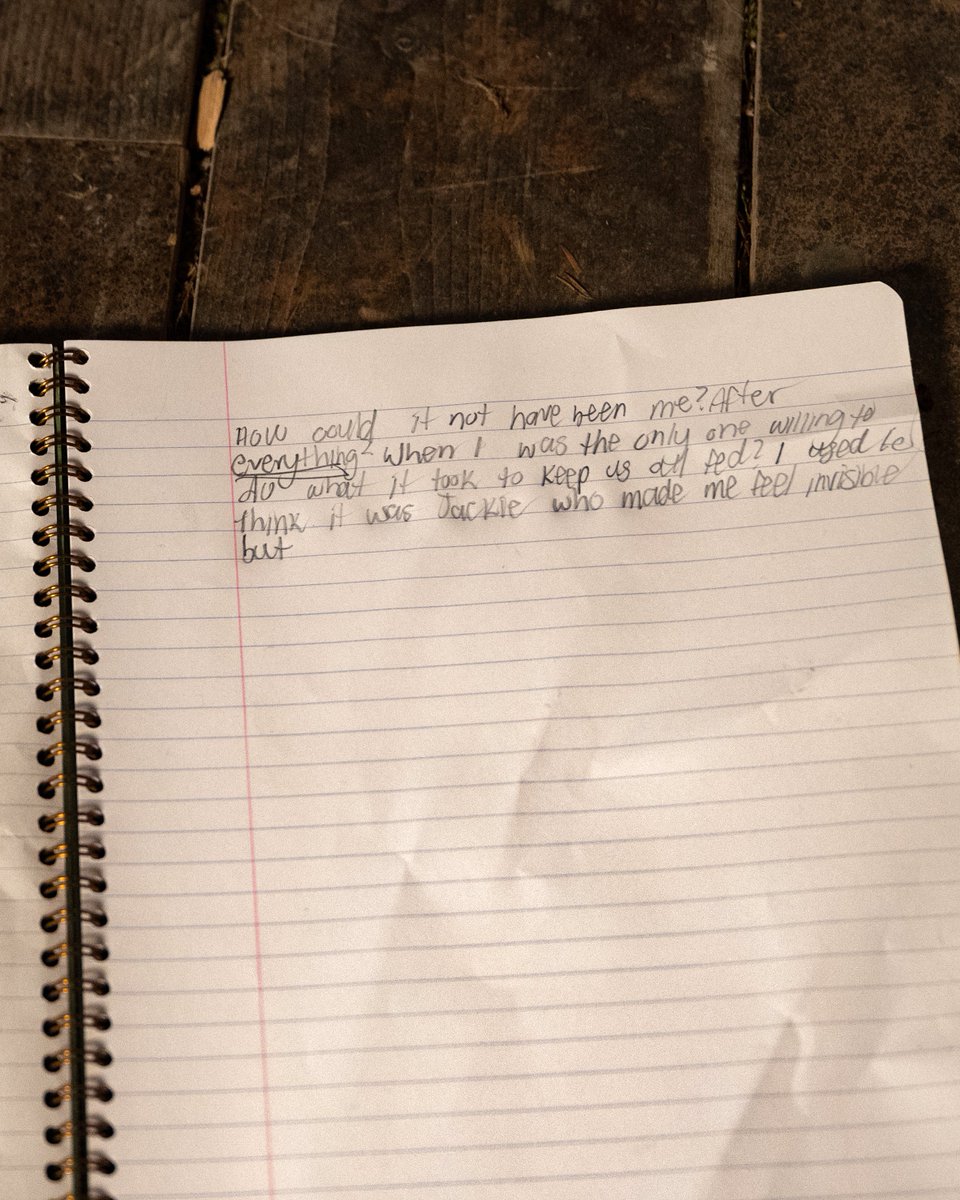 How could it not have been me? After
everything? When I was the only one willing to
do what it took to keep us all fed? I used to
think it was Jackie who made me feel invisible
but